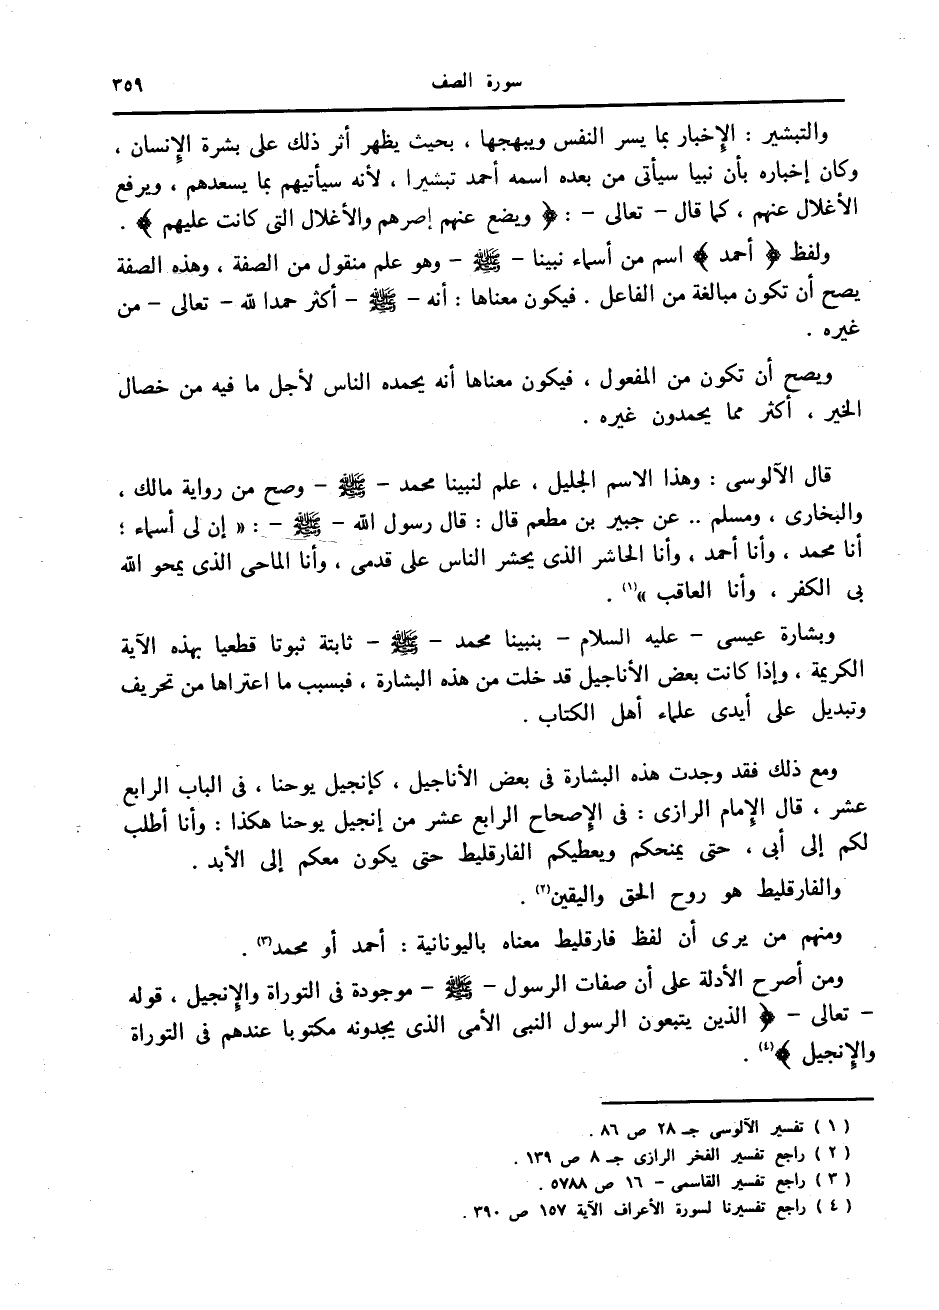 سورة الصف ٣٥٩
والتبشير : الإخبار بما يسر النفس ويبهجها ، بحيث يظهر أثر ذلك على بشرة الإنسان ،
وكان إخباره بأن نبيا سيأتى من بعده اسمه أحمد تبشيرا ، لأنه سيأتيهم بما يسعدهم ، ويرفع
الأغلال عنهم ، كما قال – تعالى – : ﴿ ويضع عنهم إصرهم والأغلال التى كانت عليهم ﴾ .
ولفظ ﴿ أحمد ﴾ اسم من أسماء نبينا – ﷺ – وهو علم منقول من الصفة ، وهذه الصفة
يصح أن تكون مبالغة من الفاعل . فيكون معناها : أنه – ﷺ – أكثر حمدا لله – تعالى – من
غيره .
ويصح أن تكون من المفعول ، فيكون معناها أنه يحمده الناس لأجل ما فيه من خصال
الخير ، أكثر مما يحمدون غيره .
قال الآلوسى : وهذا الاسم الجليل ، علم لنبينا محمد – ﷺ – وصح من رواية مالك ،
والبخارى ، ومسلم .. عن جبير بن مطعم قال : قال رسول الله – ﷺ – : « إن لى أسماء ؛
أنا محمد ، وأنا أحمد ، وأنا الحاشر الذى يحشر الناس على قدمى ، وأنا الماحى الذى يمحو الله
بى الكفر ، وأنا العاقب »(١) .
وبشارة عيسى – عليه السلام – بنبينا محمد – ﷺ – ثابتة ثبوتا قطعيا بهذه الآية
الكريمة ، وإذا كانت بعض الأناجيل قد خلت من هذه البشارة ، فبسبب ما اعتراها من تحريف
وتبديل على أيدى علماء أهل الكتاب .
ومع ذلك فقد وجدت هذه البشارة فى بعض الأناجيل ، كإنجيل يوحنا ، فى الباب الرابع
عشر ، قال الإمام الرازى : فى الإصحاح الرابع عشر من إنجيل يوحنا هكذا : وأنا أطلب
لكم إلى أبى ، حتى يمنحكم ويعطيكم الفارقليط حتى يكون معكم إلى الأبد .
والفارقليط هو روح الحق واليقين(٢) .
ومنهم من يرى أن لفظ فارقليط معناه باليونانية : أحمد أو محمد(٣) .
ومن أصرح الأدلة على أن صفات الرسول – ﷺ – موجودة فى التوراة والإنجيل ، قوله
– تعالى – ﴿ الذين يتبعون الرسول النبى الأمى الذى يجدونه مكتوبا عندهم فى التوراة
والإنجيل ﴾(٤) .
( ١ ) تفسير الآلوسى جـ ٢٨ ص ٨٦ .
( ٢ ) راجع تفسير الفخر الرازى جـ ٨ ص ١٣٩ .
( ٣ ) راجع تفسير القاسمى – ١٦ ص ٥٧٨٨ .
( ٤ ) راجع تفسيرنا لسورة الأعراف الآية ١٥٧ ص ٣٩٠ .